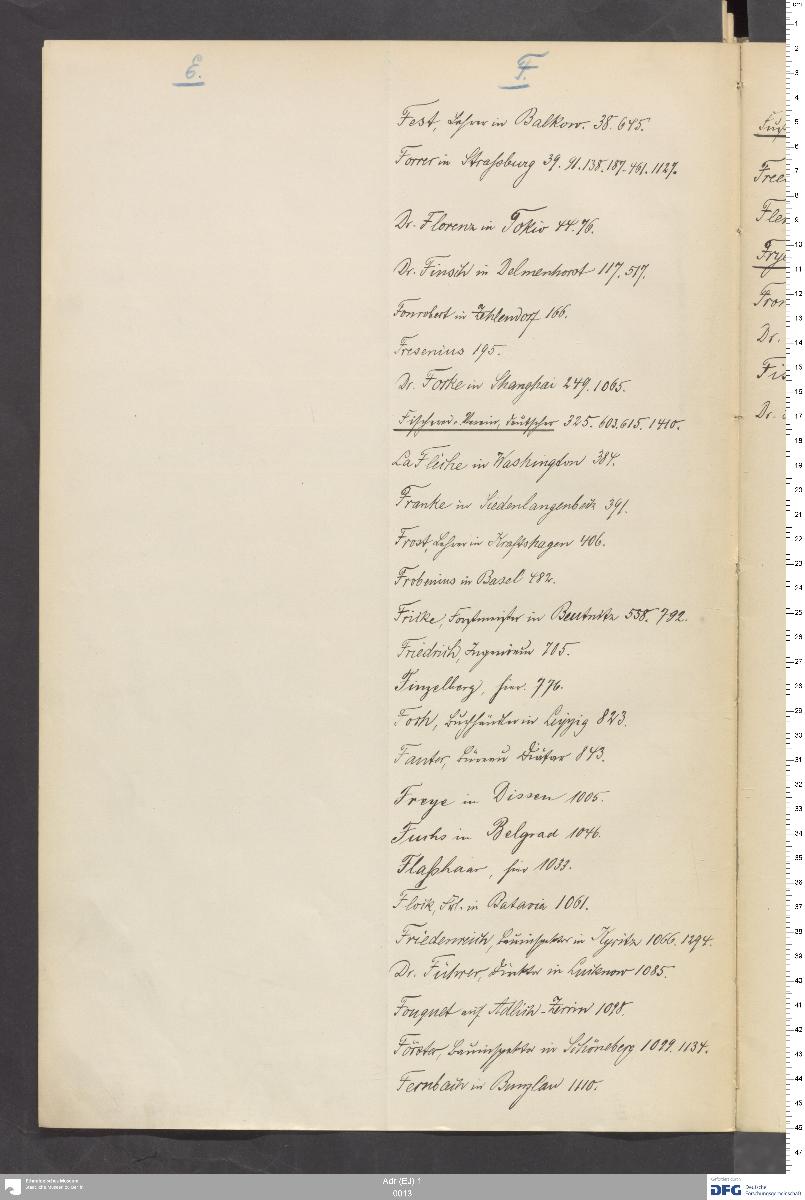 E.
F.
Fest, Lehrer in Balkow. 38. 645.
Forrer in Straßburg 39. 91. 138. 187. 461. 1127.
Dr. Florenz in Tokio 44. 76.
Dr. Finsch in Delmenhorst 117. 517.
Fonrobert in Zehlendorf 166.
Fresenius 195.
Dr. Forke in Shanghai 249. 1065.
Fischerei-Verein, deutscher 325. 603. 615. 1410.
La Flèche in Washington 384.
Franke in Siedenlangenbeck 391.
Frost, Lehrer in Kraftshagen 406.
Frobenius in Basel 482.
Fricke, Forstmeister in Beutnitz 538. 792.
Friedrich, Ingenieur 705.
Finzelberg, hier. 776.
Foth, Buchhändler in Leipzig 823.
Fanter, Büreau Diätar 843.
Freye in Dissen 1005.
Fuchs in Belgrad 1046.
Flaßhaar, hier 1033.
Floik, Frl. in Batavia 1061.
Friedenreich, Bauinspektor in Kyritz 1066. 1294.
Dr. Führer, Direktor in Lucknow 1085.
Fouquet auf Adlich-Zerrin 1098.
Förster, Bauinspektor in Schöneberg 1099. 1134.
Fernbach in Bunzlau 1110.
Free
Frye
Fron
Dr.
Fis
Dr.
Ethnologisches Museum
Staatliche Museen zu Berlin
Adr (EJ) 1
0013
Gefördert durch
DFG Deutsche
Forschungsgemeinschaft